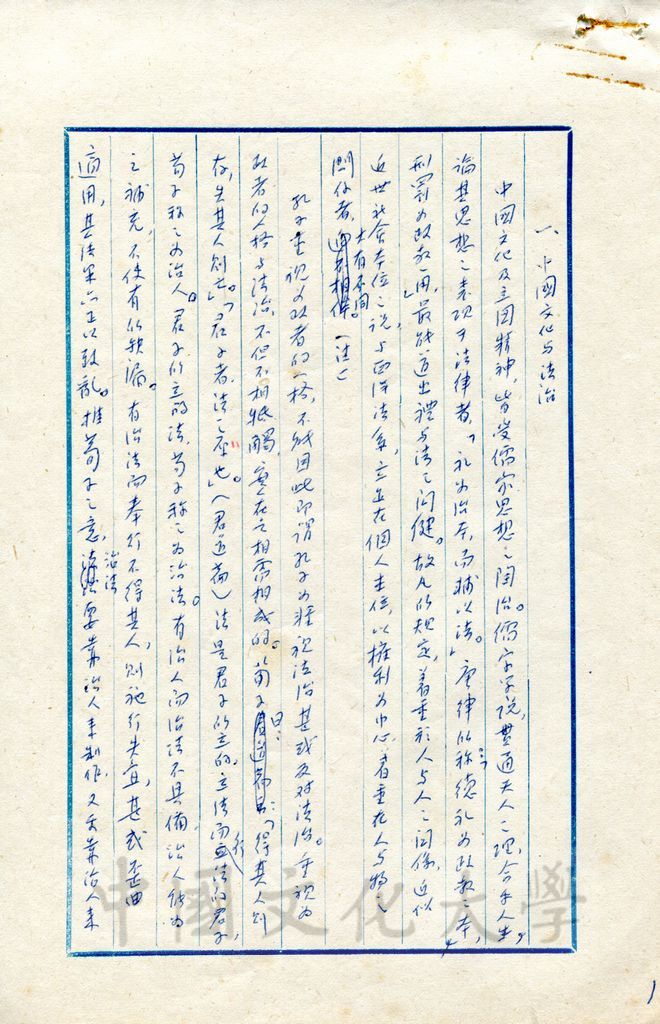 一、中國文化與法治
中國文化及立國精神，皆受儒家思想之陶冶。儒家學說，貫通天人之理，合乎人生，
論其思想之表現于法律者，「禮為治本，而輔以法。」唐律所稱「德禮為政教之本，
刑罰為政教之用」，最能道出禮與法之關健。故凡所規定，着重於人與人之關係，近似
近世社會本位之說，與西洋法系，立足在個人主位，以權利為中心，着重在人與物之
關係者，大有不同。（註一）
孔子重視為政者的人格，不能因此即謂孔子為輕視法治甚或反對法治。重視為
政者的人格與法治，不但不相牴觸，實在是相需相成的。荀子曰：「得其人則
存，失其人則亡。」「君子者，法之原也」。（君道篇）法是君子所立的，立法而行法的君子，
荀子稱之為治人。君子所立的法，荀子稱之為治法。有治人而治法不具備，治人能為
之補充，不使有所缺漏。有治法而奉行不得其人，則施行失宜，甚或歪曲
適用，其結果亦正以致亂。推荀子之意，治法要靠治人來制作，又要靠治人來
中國文化大學
1